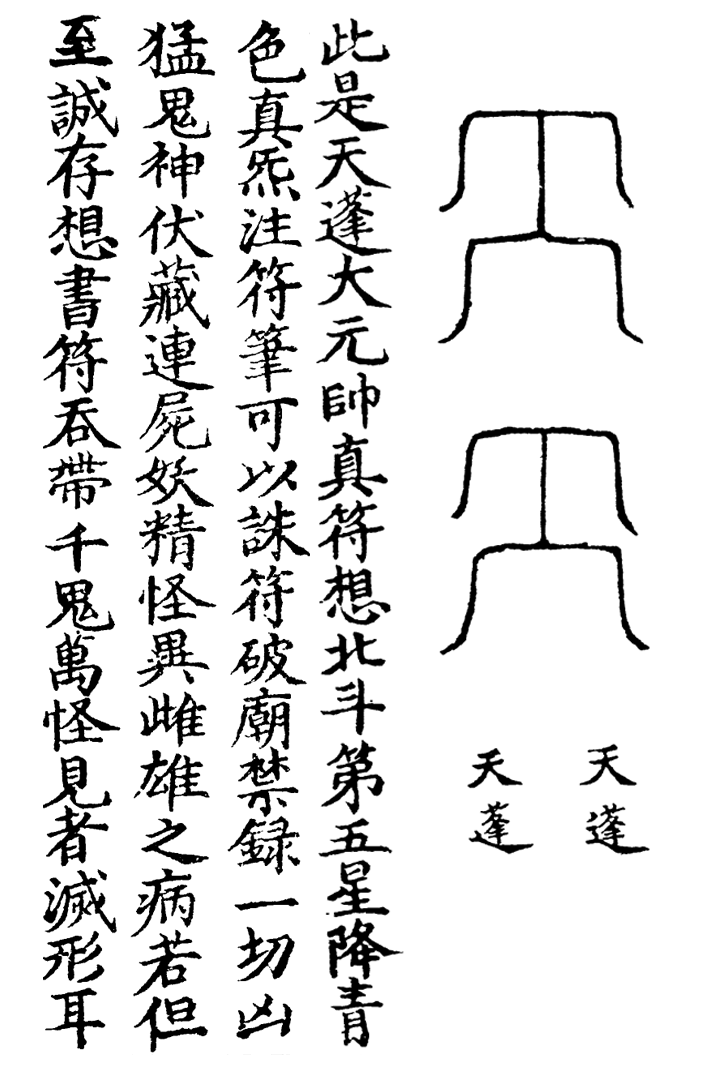 天蓬
天蓬
此是天蓬大元帥真符想北斗第五星降青
色真炁注符筆可以誅符破廟禁録一切凶
猛鬼神伏藏連屍妖精怪異雌雄之病若但
至誠存想書符吞帶千鬼萬怪見者滅形耳